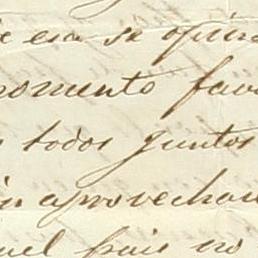 e esa se opina
momento favo
s todos juntos
in aprovechar
uel pais no